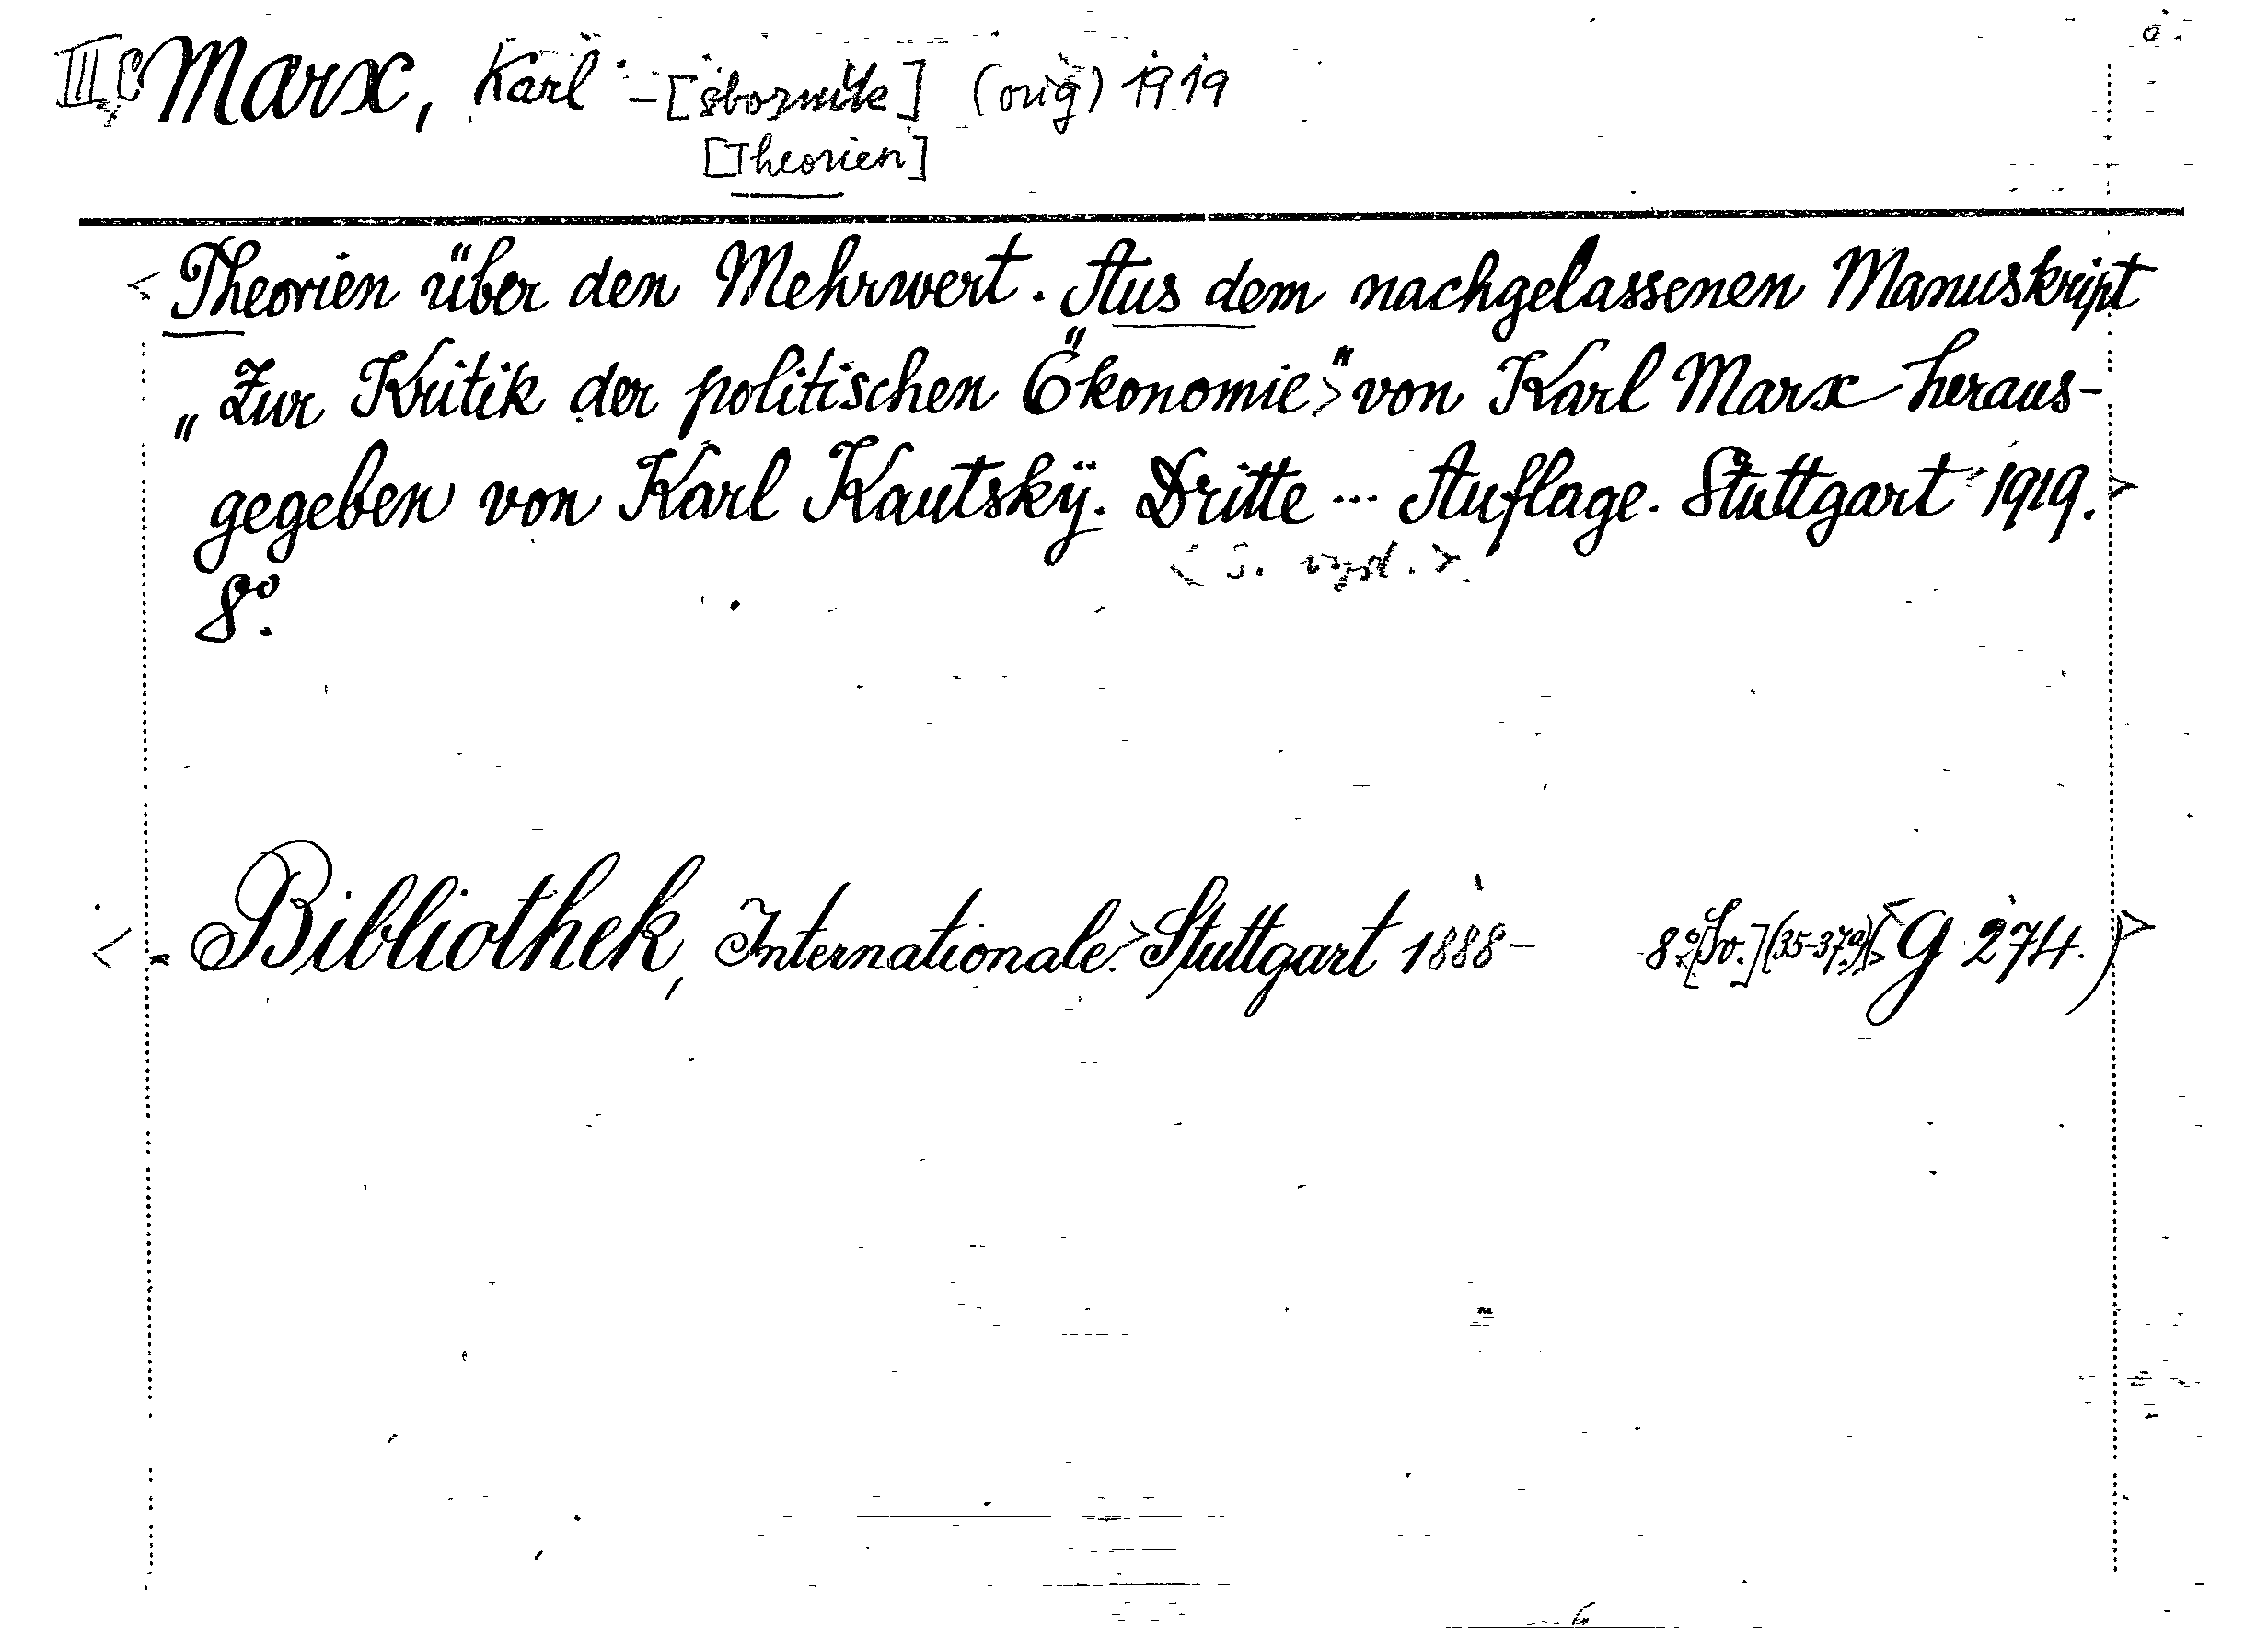 III C Marx, Karl - [sborník] (orig) 1919
[Theorien]
< Theorien über den Mehrwert. Aus dem nachgelassenen Manuskript
„Zur Kritik der politischen Ökonomie>" von Karl Marx heraus-
gegeben von Karl Kautsky. Dritte ... Auflage. Stuttgart 1919.>
< s. vyd. >
8°.
< - Bibliothek, Internationale.> Stuttgart 1888- 8° [Sv.] (35-37a) < G 274.) >